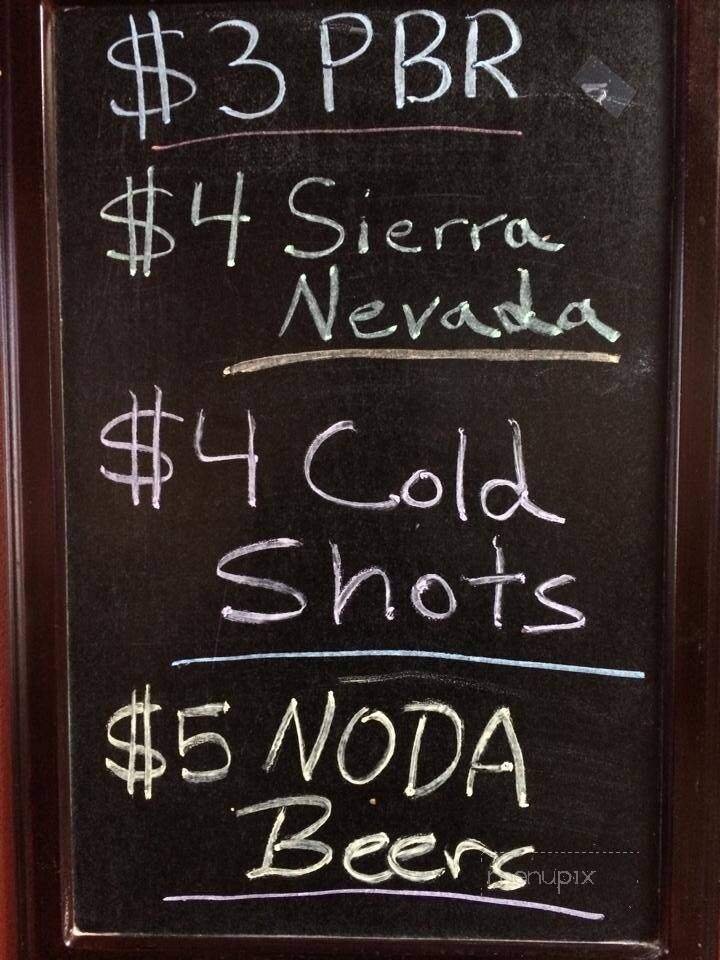 $3 PBR
$4 Sierra
Nevada
$4 Cold
Shots
$5 NODA
Beers
menupix